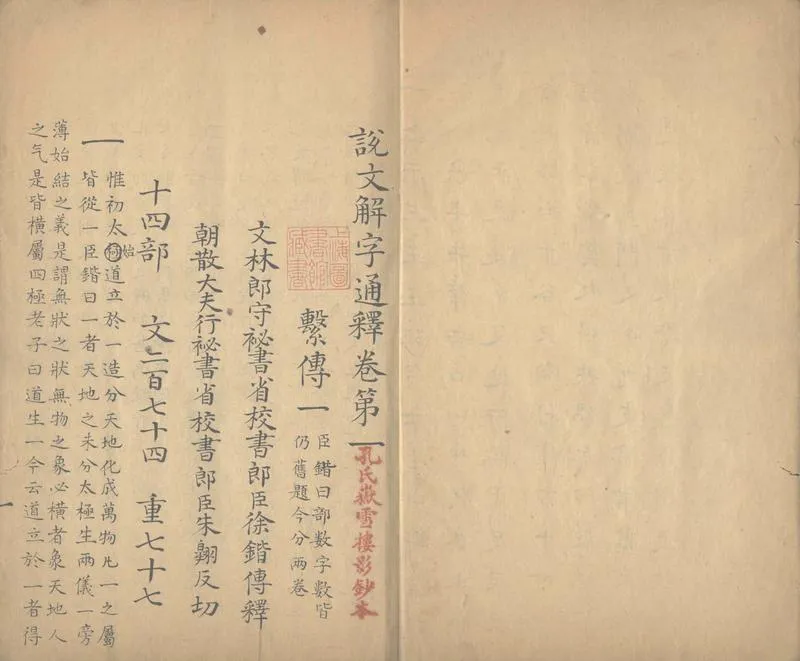 說文解字通釋卷第一
孔氏嶽雪樓影鈔本
上海圖書館藏書
繫傳一
臣鍇曰部數字數皆
仍舊題今分兩卷
文林郎守祕書省校書郎臣徐鍇傳釋
朝散大夫行祕書省校書郎臣朱翱反切
十四部 文二百七十四 重七十七
一
惟初太極道立於一造分天地化成萬物凡一之屬
始
皆從一臣鍇曰一者天地之未分太極生兩儀一旁
薄始結之義是謂無狀之狀無物之象必橫者象天地人
之气是皆橫屬四極老子曰道生一今云道立於一者得